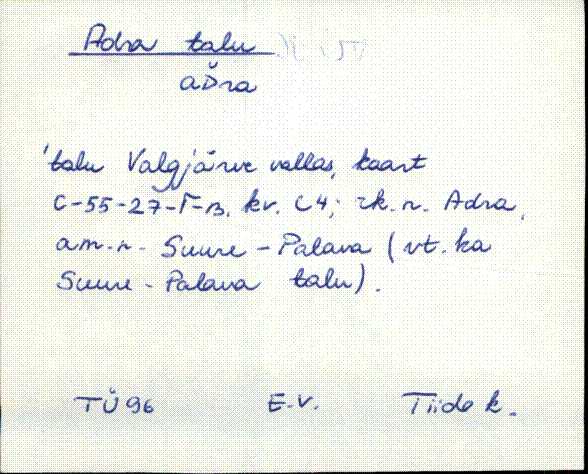 Adra talu
aD̆ra
'talu Valgjärve vallas, kaart
C-55-27-Г-в, kv. C4; rk. n. Adra,
am. n. Suure-Palava (vt. ka
Suure-Palava talu).
TÜ 96 E.V. Tiido k.